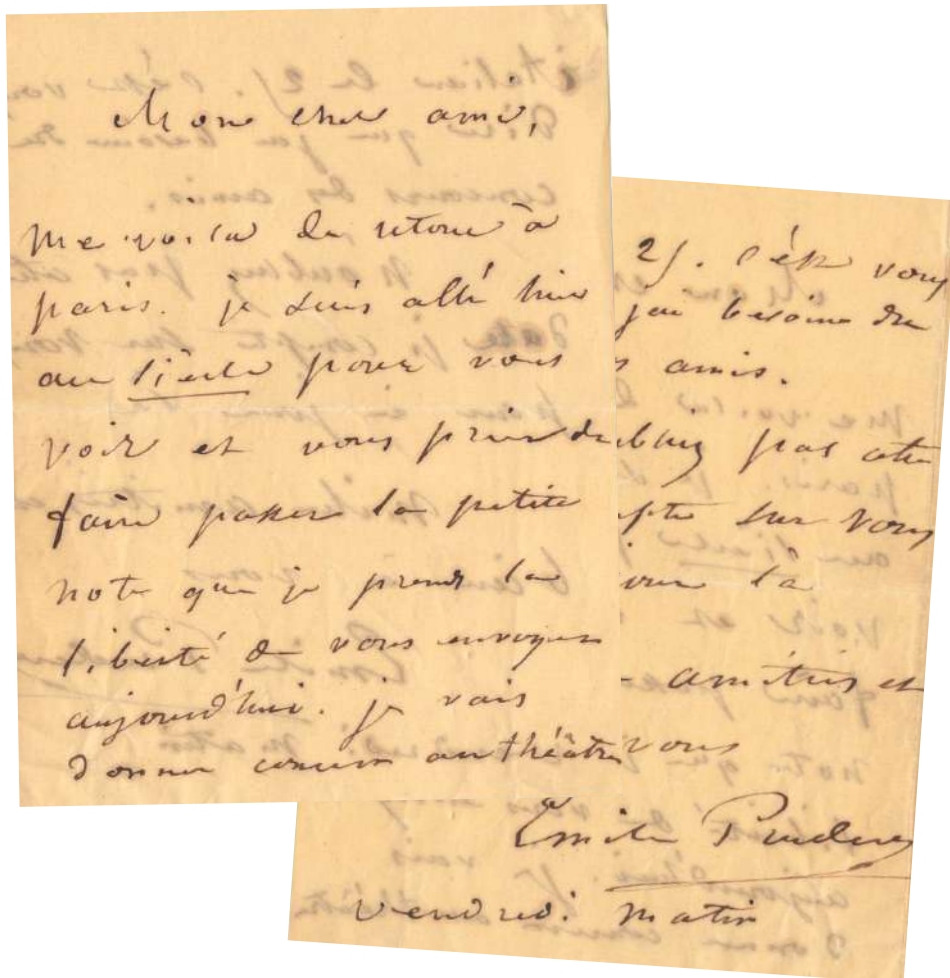 Mon cher ami,
me voila de retour à
paris. je suis allé hier
au Siècle pour vous
voir et vous prier de
faire passer la petite
note que je prends la
liberté de vous envoyer
aujourd'hui. je vais
donner concert au théâtre
25. C'est vous
j'ai besoin du
amis.
ubliez pas cette
pte sur vous
jour là
amitiés et
vous
Emile Prudent
Vendredi matin